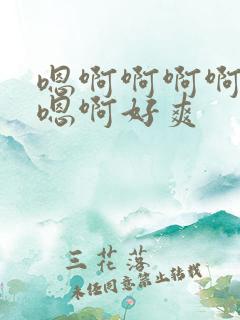 嗯啊啊啊啊
嗯啊好爽
三花落
未经同意禁止转载